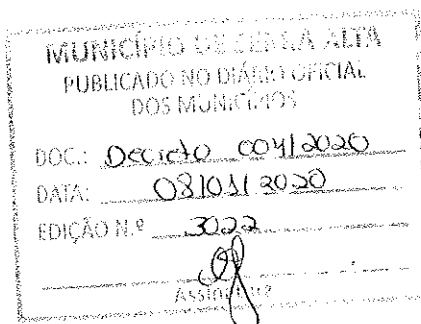 MUNICÍPIO DE SERRA ALTA
PUBLICADO NO DIÁRIO OFICIAL
DOS MUNICÍPIOS
DOC.: Decreto 004/2020
DATA: 08/01/2020
EDIÇÃO N.º 3022
Assinatura